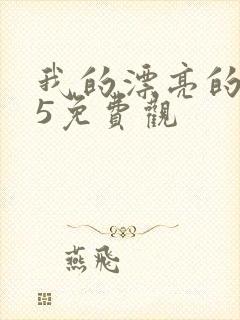 我的漂亮的
5免費觀
燕飛